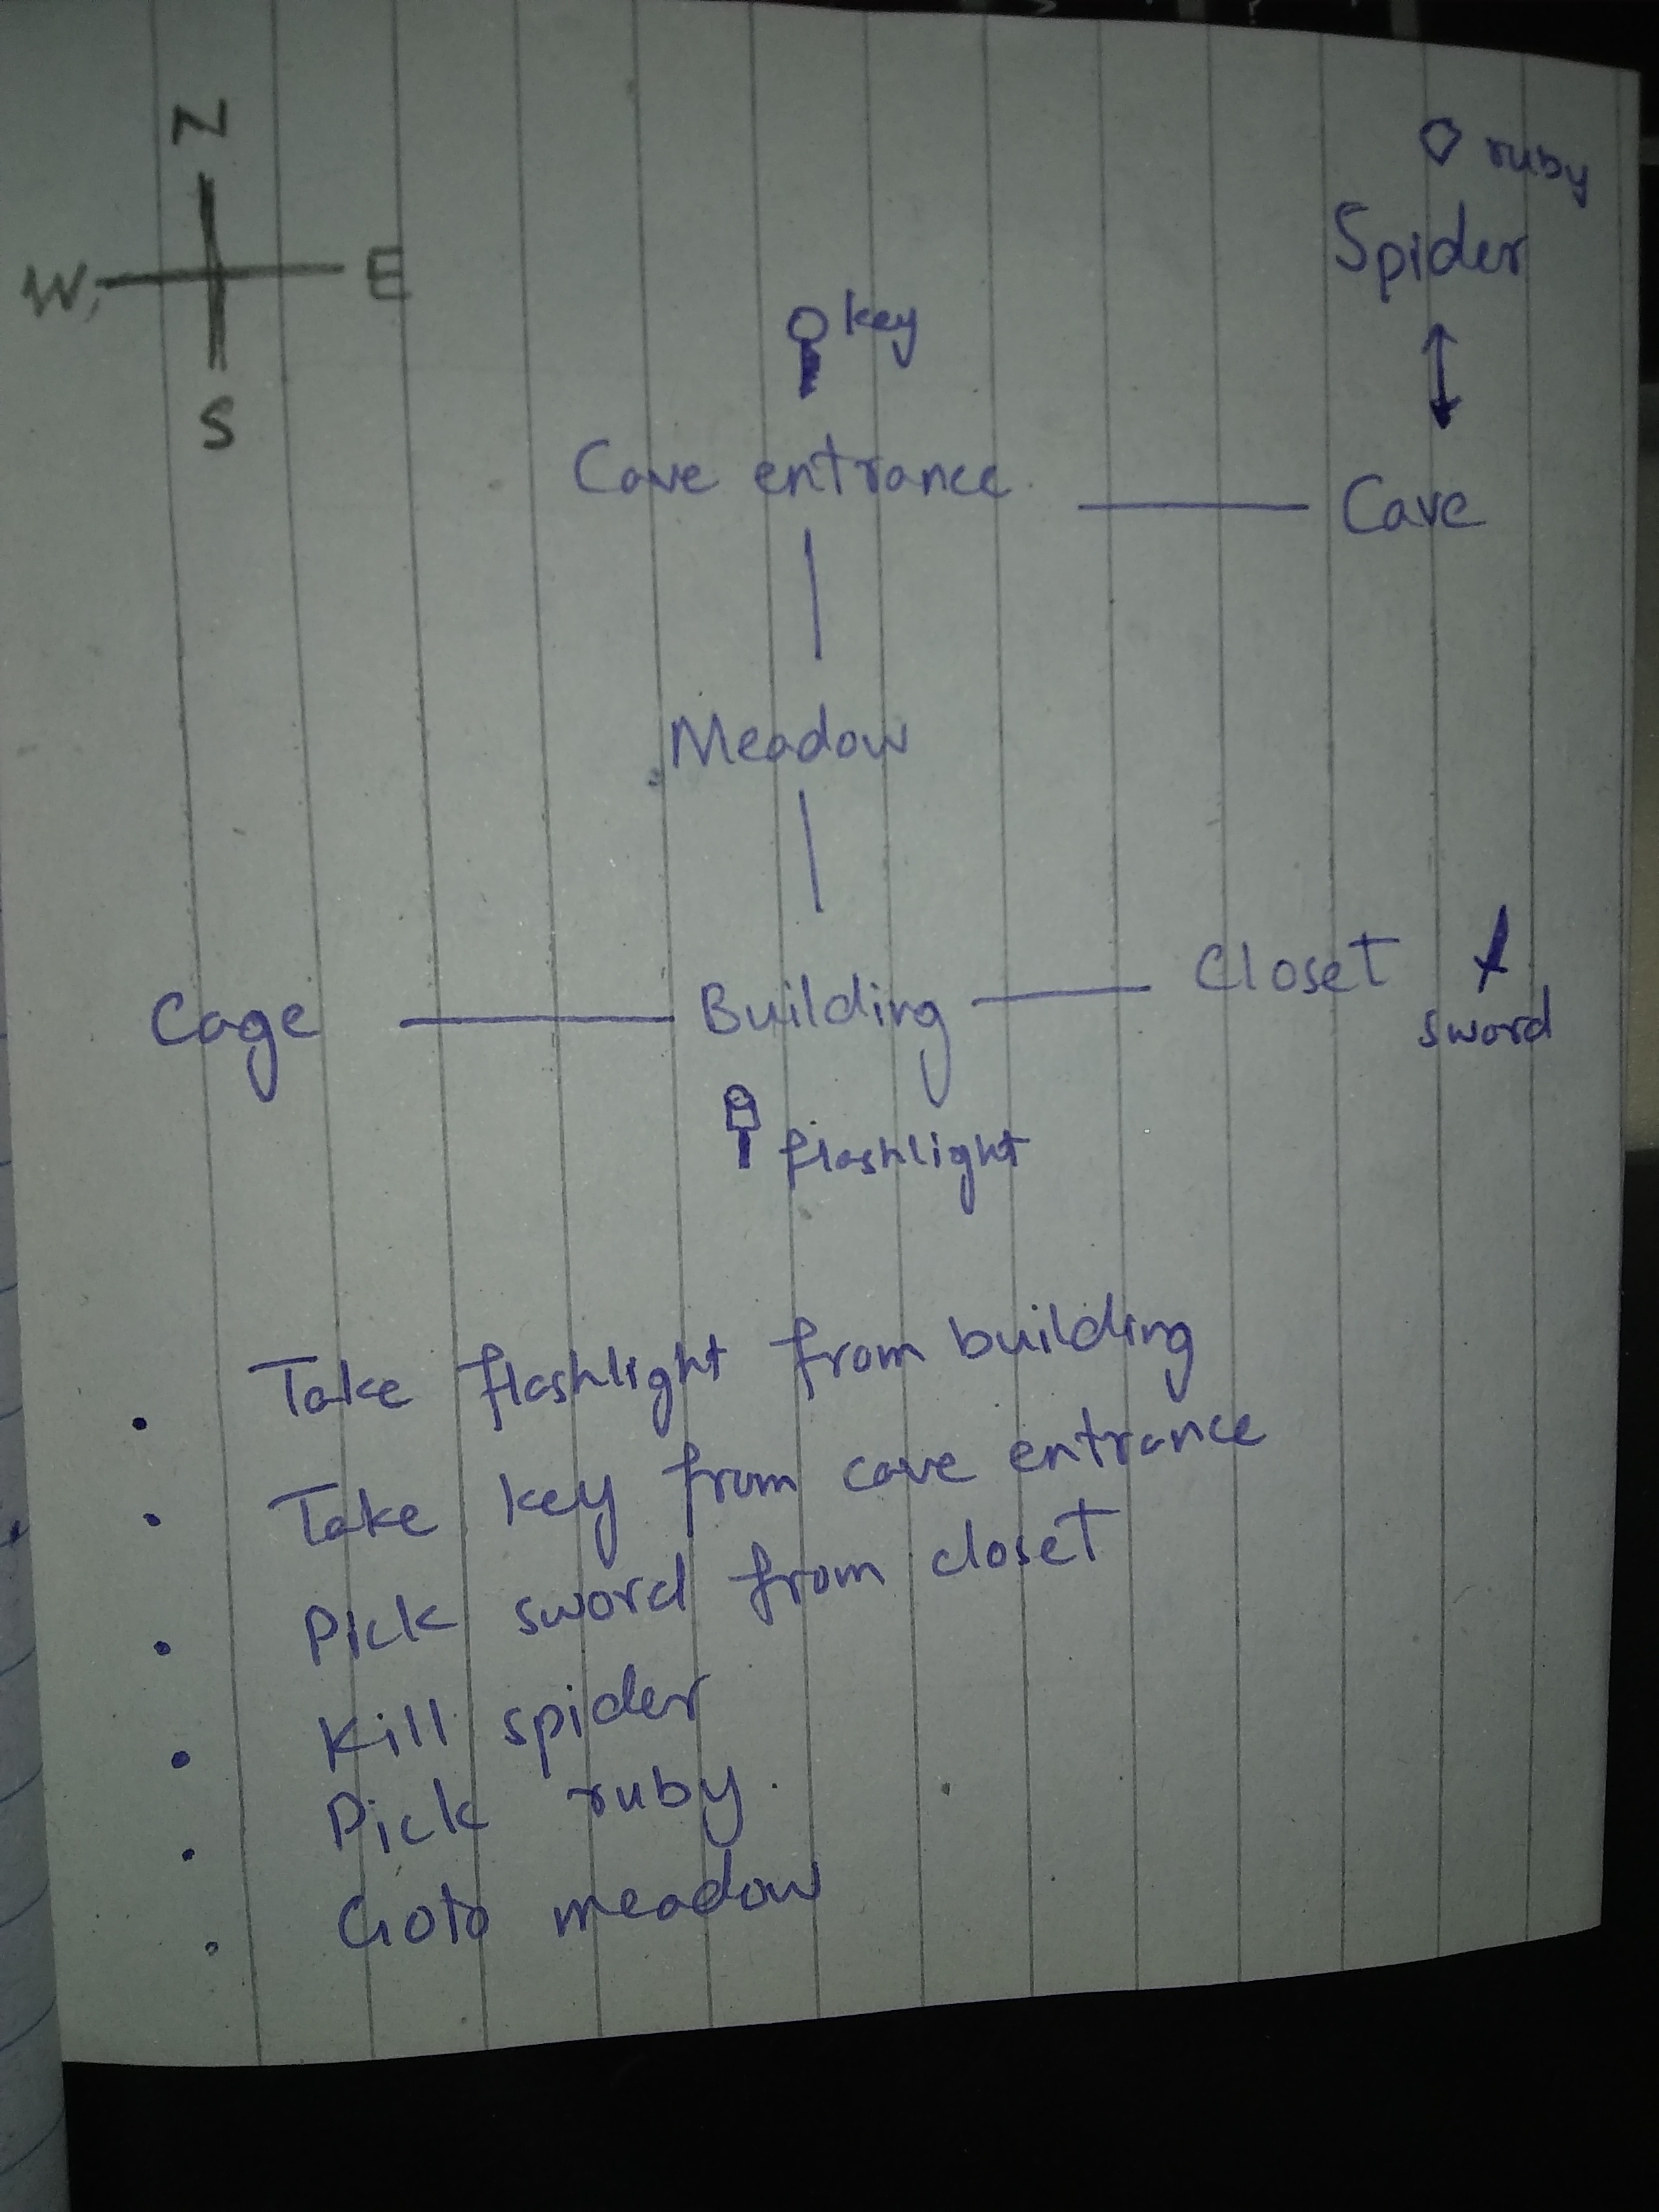 N
W E
S
ruby
Spider
key
Cave entrance
Cave
Meadow
Cage Building Closet
sword
flashlight
• Take flashlight from building
• Take key from cave entrance
• Pick sword from closet
• Kill spider
• Pick ruby
• Goto meadow